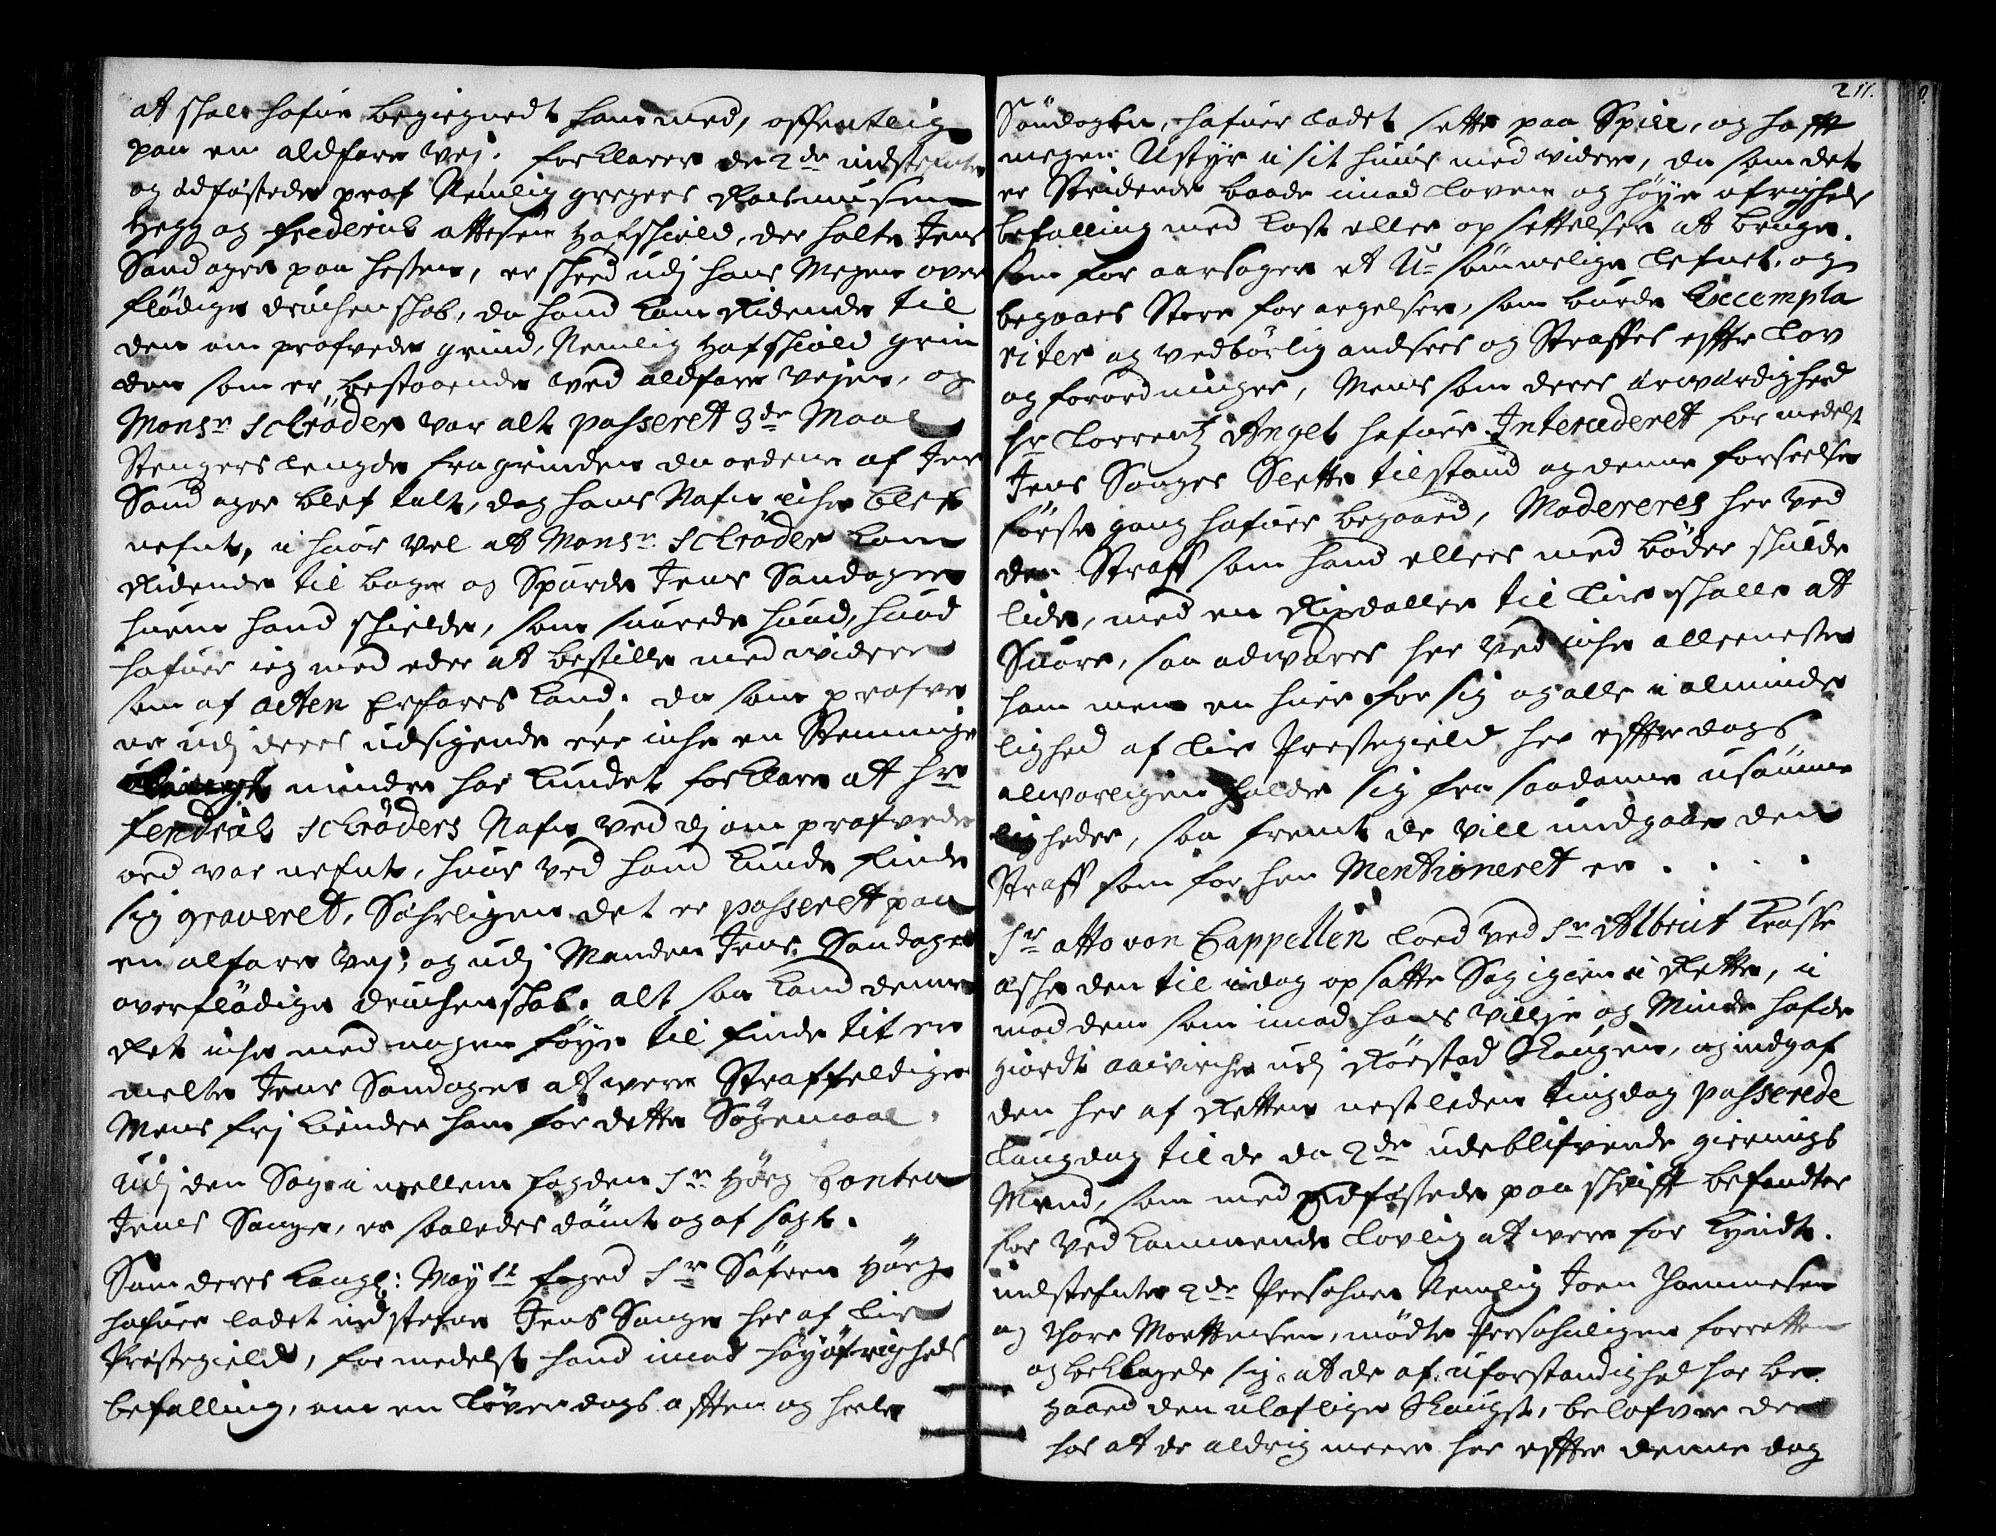 at skal hafue begiegnedt ham med, offentlig
paa en aldfare Vej. forklarer de 2de indstefnte
og ædfæstede prof Nemlig gregers Rasmusen
Hegg og frederich ottesen Hafskield, der holte Jens
Sandager paa hesten, er skeed udj hans Megen over
flödige druchenskab, da hand kom Ridende til
den om profvede grind, Nemlig Hafskield grin
den som er bestaaende ved aldfare vejen, og
Monsr Schröder var alt passeret 3de Maal
Stengers lengde fra grinden da ordene af Jens
Sandager blef talt, dog hans Nafn iche blef
nefnt, i huor vel at Monsr Schröder kom
Ridende til bage og Spurde Jens Sandager
huem hand skielte, som suarede huad, huad
hafuer ieg med eder at bestille med widere
som af acten Erfares kand. da som profve
ne udj deres udsigende éér iche en Stemmige
mindre har kundet forklare at hr
fendrich Schröders Nafn ved dj om profvede
ord var nefnt, huor ved hand kunde finde
sig graveret, Særligen det er passeret paa
en alfare Vej, og udj Manden Jens Sandagers
overflödige druchenskab. alt saa kand denne
Ret iche med nogen föye til finde tit er
melte Jens Sandager at were Straffeldige
Mens frj kiender ham for dette Søgemaal.
Udj den Sag i mellem fogden Sr Höeg Contra
Jens Sange, er saaledes dömt og af sagt.
Som deres Kongl: Mayst foged Sr Söfren Höeg
hafuer ladet ind stefne Jens Sange her af Lier
Prestegield, formedelst hand imod höyöfrigheds
befalling, om en Löverdags afften og heele
211.
Söndagen, hafuer ladet sette paa Spill, og hafft
megen Ustyr i sit huus med widere, da som det
er Stridende baade imod loven og höye öfrigheds
befalling med kost eller op settelser at bruge.
som for aarsager et U-sømmelige lefnet, og
begaaes Store for argelser, som burde Execempla
riter og vedbörlig andsees og Straffes effter lov
og forordninger, Mens som deres ærværdighed
hr Lorrentz Angel hafuer Intercederet for medelst
Jens Sanges Slette tilstand og denne forseelse
förste gang hafuer begaaed, Modereres her ved
den Straff som hand ellers med böder skulde
lide, med en Rixdaller til Lier skolle at
Suare, saa advares her ved iche alleeneste
ham men en huer for sig og alle i alminde
lighed af Lier Prestegield her effterdags
alvorligen holde sig fra saadanne usömme
ligheder, saa fremt de vill undgaae den
Straff som for hen Mentioneret er . . . .
Sr otto von Cappellen loed ved Sr Albrit kruse
æshe den til i dag op satte Sag igien i Rette, i
mod dem som imod hans villje og Minde hafde
giordt aavirche udj Röestad Skougen, og indgaf
den her af Retten nestleden tingdag passerede
Laugdag til de da 2de udeblifvende giernings
Mend, som med Eedfæstede paaskrifft befandtes
for ved kommende lovlig at were for kyndt.
indstefnte 2de Persohner Nemlig Joen Hammesen
og Thore Morttensen, mödte Persohnligen for retten
og beklagede sig at de af uforstandighed har be
gaaed den ulaflige Skougst, belofver der
for at de aldrig meere her effter denne dag